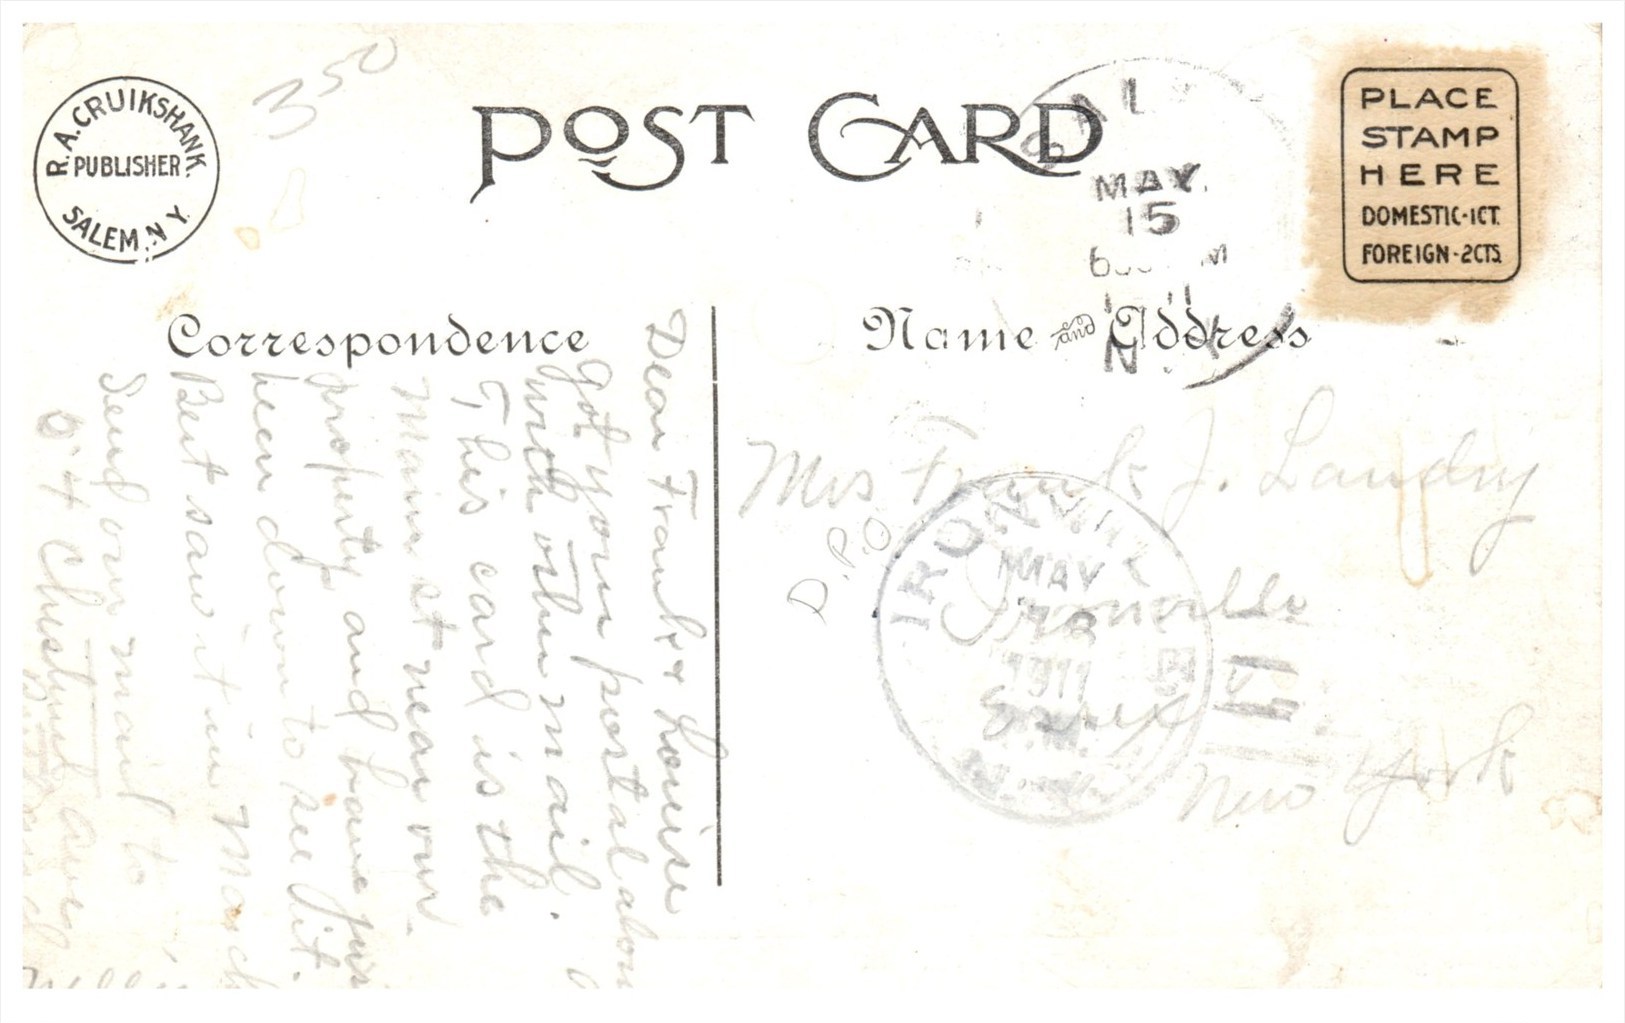 R.A. CRUIKSHANK.
PUBLISHER
SALEM, N.Y.
350
POST CARD
SAL
MAY
15
6 M
11
N.Y.
PLACE
STAMP
HERE
DOMESTIC-1CT.
FOREIGN-2CTS.
Correspondence
Name and Address
Dear Frank & Louise
got your postal along
with other mail.
This card is the
Main st near our
property and have just
been down to see it.
Bert saw it in March
Send our mail to
64 Chestnut ave
Mrs Frank J. Landry
D.P.O
Ironville
Essex
New York
IRONVILLE
MAY
1911
M.